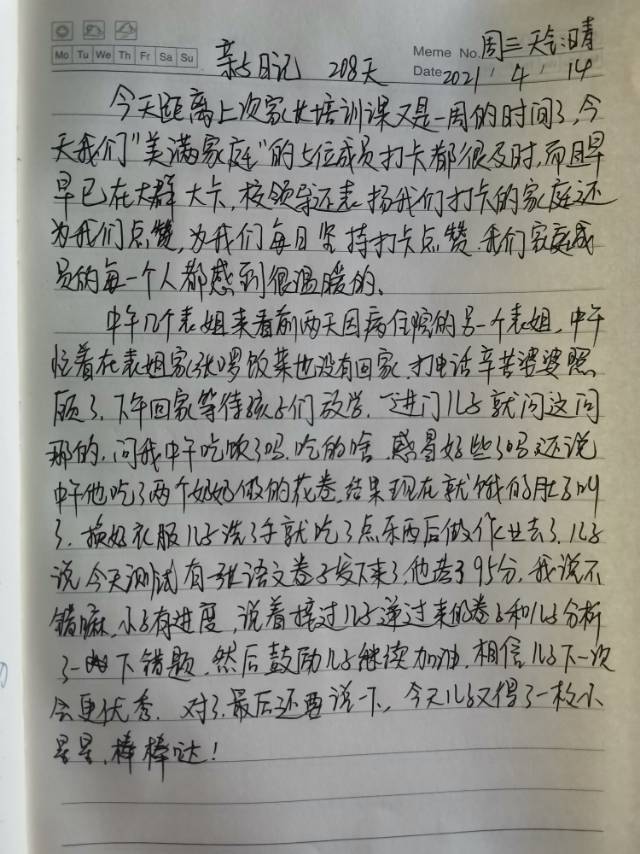 Mo Tu We Th Fr Sa Su
Meme No. 周三 天气:晴
亲子日记 208天
Date 2021 / 4 / 14
今天距离上次家长培训课又是一周的时间了,今
天我们"美满家庭"的5位成员打卡都很及时,而且早
早已在大群大卡,校领导还表扬我们打卡的家庭还
为我们点赞,为我们每日坚持打卡点赞.我们家庭成
员的每一个人都感到很温暖的、
中午几个表姐来看前两天因病住院的另一个表姐,中午
忙着在表姐家张啰饭菜也没有回家,打电话辛苦婆婆照
顾了、下午回家等待孩子们放学,一进门儿子就问这问
那的,问我中午吃饭了吗,吃的啥,感冒好些了吗,还说
中午他吃了两个奶奶做的花卷,结果现在就饿的肚子叫
了.换好衣服儿子洗了手就吃了点东西后做作业去了、儿子
说今天测试有一张语文卷子发下来了,他考了95分,我说不
错嘛,小子有进度,说着接过儿子递过来的卷子和儿子分析
了一下错题,然后鼓励儿子继续加油,相信儿子下一次
会更优秀.对了,最后还要说一下,今天儿子又得了一枚小
星星,棒棒哒!